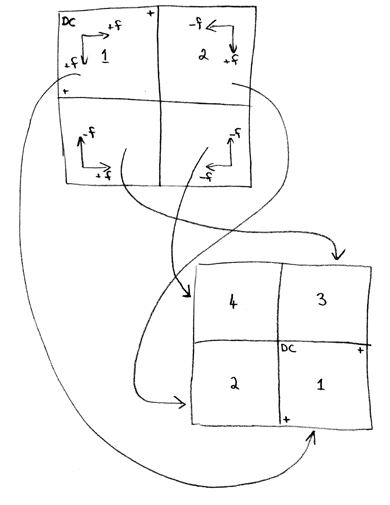 DC +
+f -f
+f 1 2 +f
+
-f -f
+f -f
4 3
DC +
2 1
+